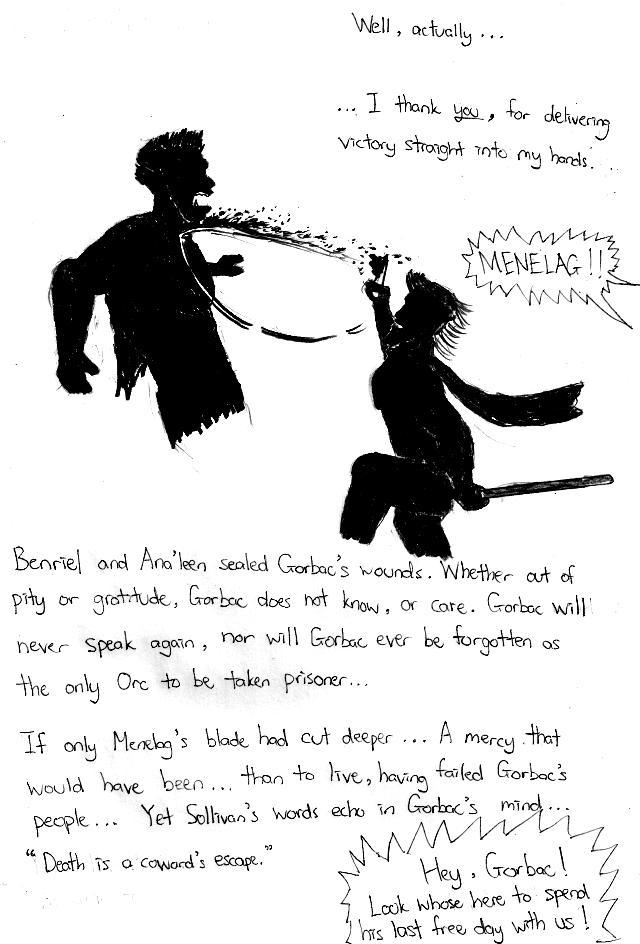 Well, actually...
... I thank you, for delivering
victory straight into my hands...
MENELAG!!
Benriel and Ana'leen sealed Gorbac's wounds. Whether out of
pity or gratitude, Gorbac does not know, or care. Gorbac will
never speak again, nor will Gorbac ever be forgotten as
the only Orc to be taken prisoner...
If only Menelag's blade had cut deeper... A mercy that
would have been... than to live, having failed Gorbac's
people... Yet Sollivan's words echo in Gorbac's mind...
"Death is a coward's escape."
Hey, Gorbac!
Look whose here to spend
his last free day with us!